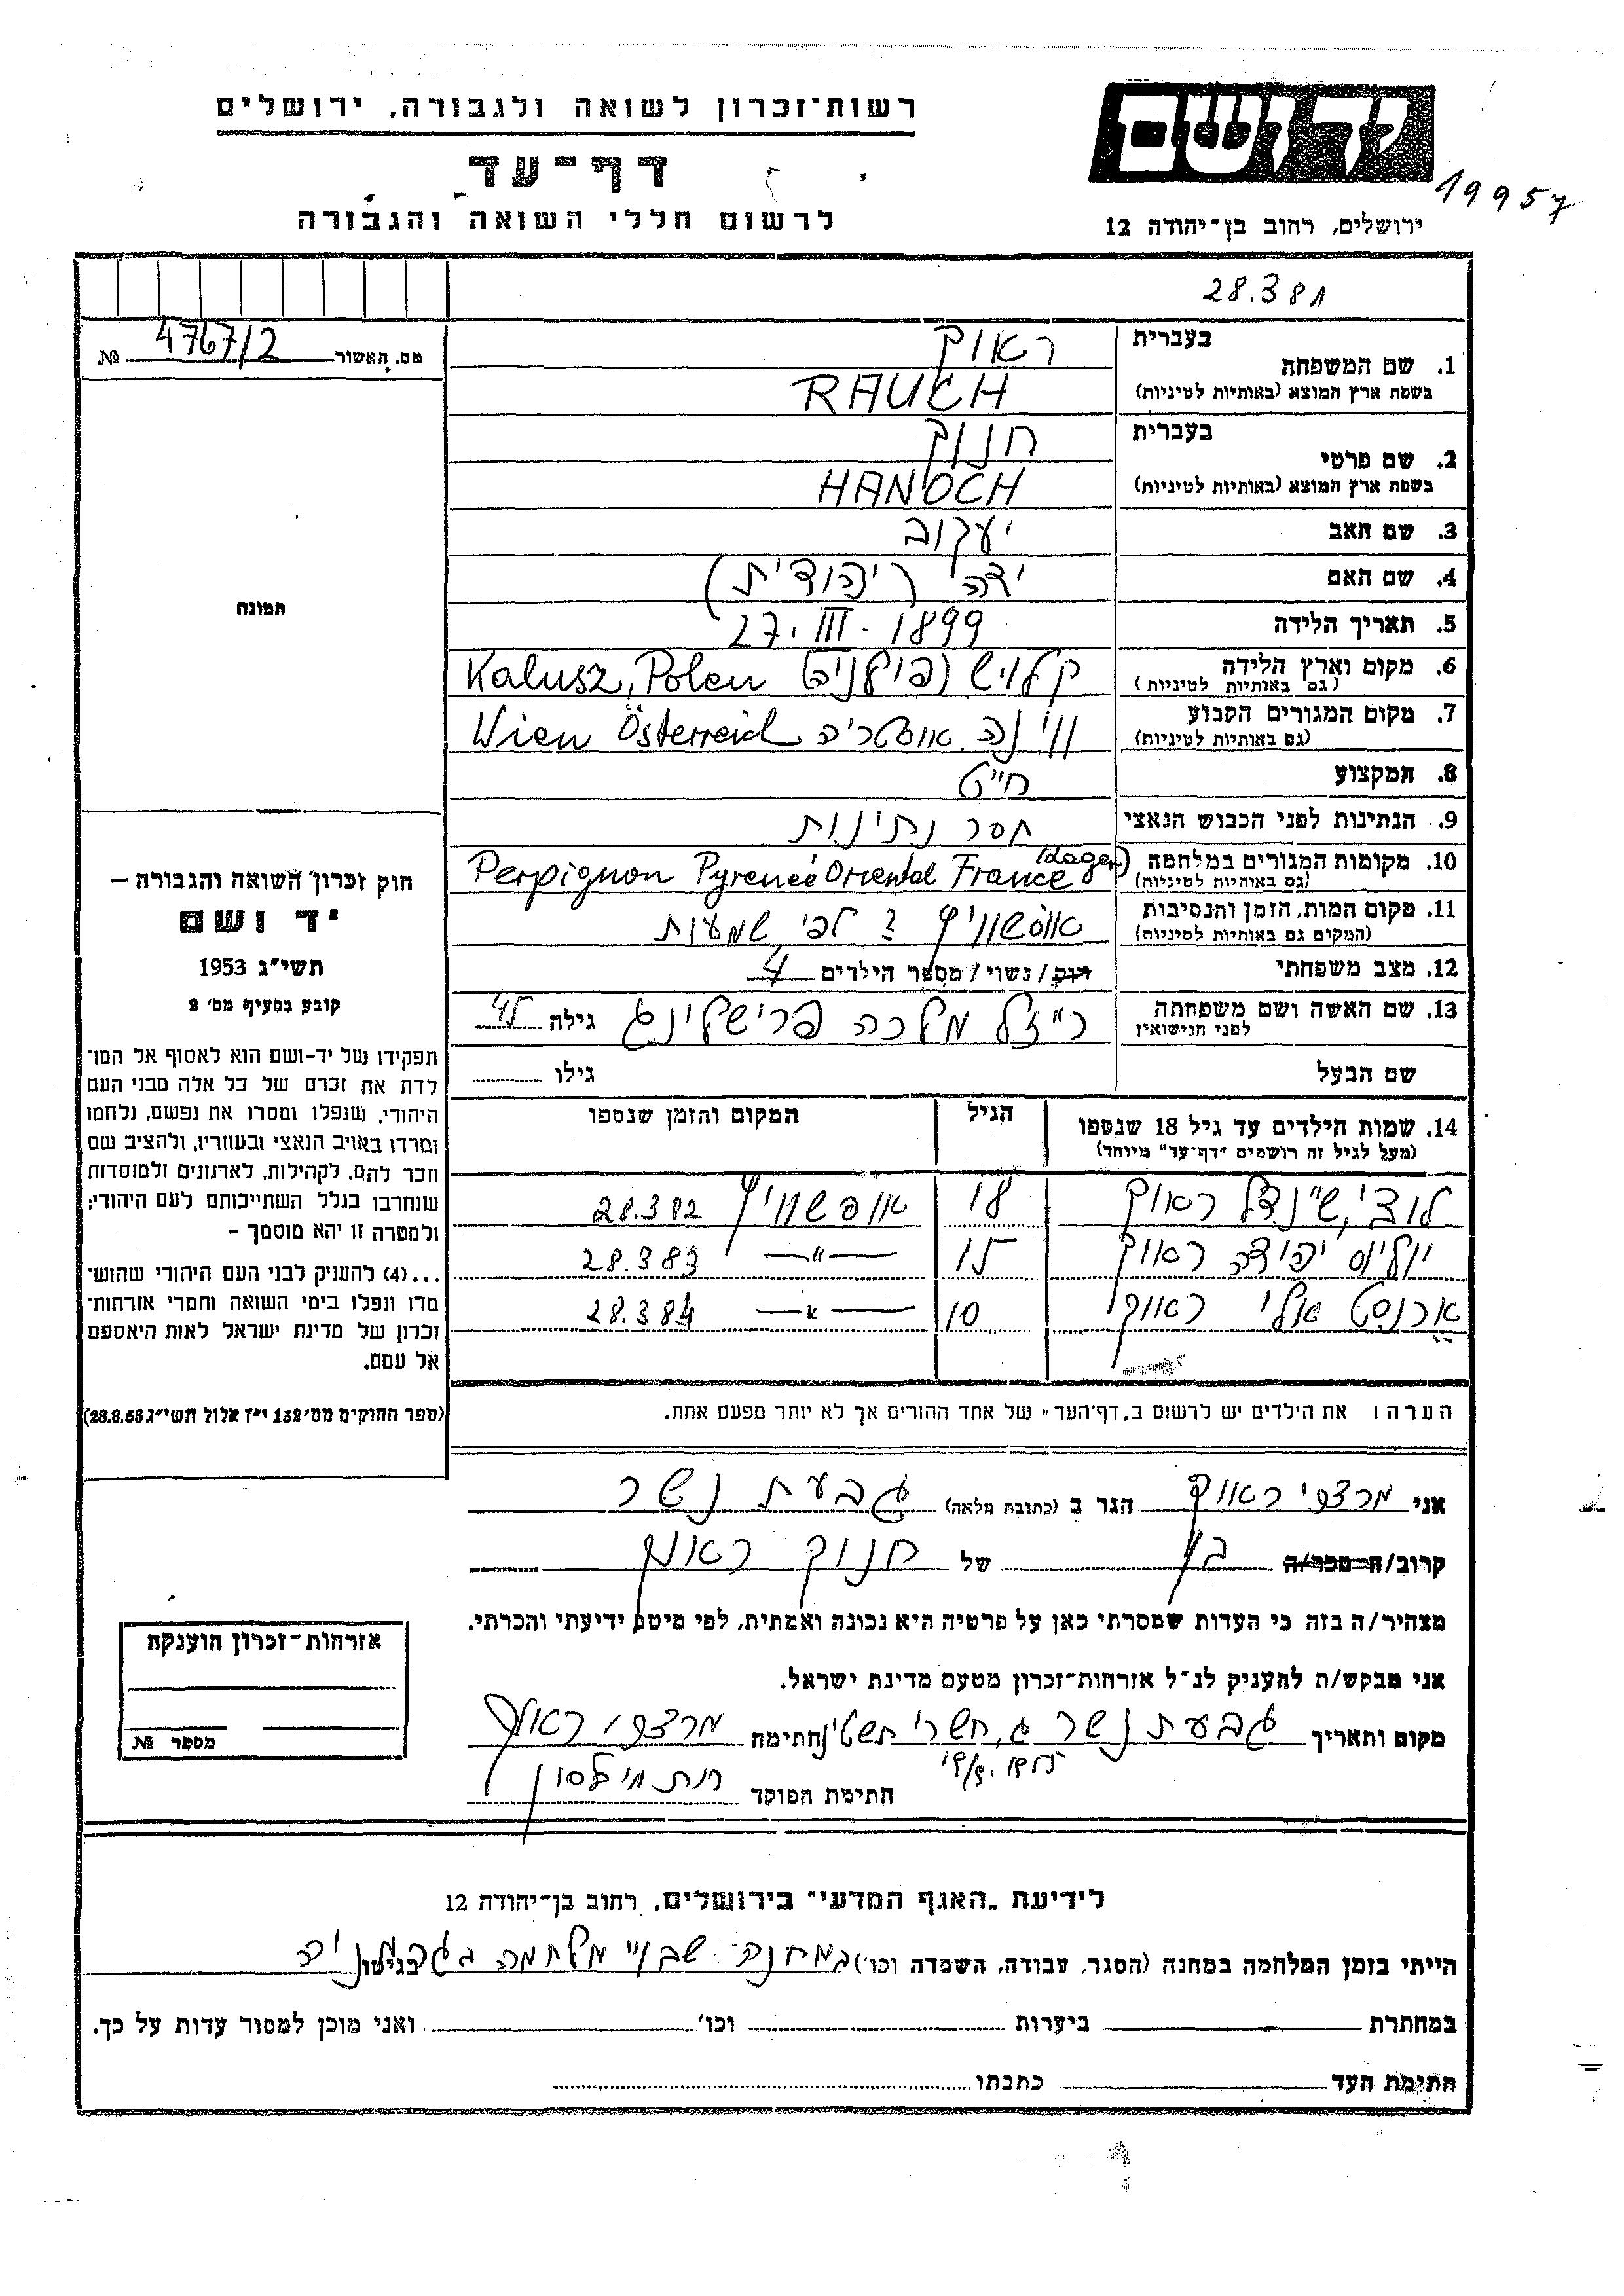 רשות־זכרון לשואה ולגבורה, ירושלים
יד ושם
דף־עד
19957
לרשום חללי השואה והגבורה
ירושלים, רחוב בן־יהודה 12
28.381
מס. האשור 4767/2 №
בעברית ראוך
1. שם המשפחה
בשפת ארץ המוצא (באותיות לטיניות) RAUCH
בעברית חנוך
2. שם פרטי
בשפת ארץ המוצא (באותיות לטיניות) HANOCH
3. שם האב יעקוב
4. שם האם יטה (יהודית)
5. תאריך הלידה 27.III.1899
6. מקום וארץ הלידה קלויש (פולניה) Kalusz, Polen
(גם באותיות לטיניות)
7. מקום המגורים הקבוע ווינה אוסטריה Wien Österreich
(גם באותיות לטיניות)
8. המקצוע חייט
9. הנתינות לפני הכבוש הנאצי חסר נתינות
10. מקומות המגורים במלחמה Perpignon Pyreneé Oriental France (Lager)
(גם באותיות לטיניות)
11. מקום המות, הזמן והנסיבות אושוויץ ? לפי שמעות
(המקום גם באותיות לטיניות)
12. מצב משפחתי רווק / נשוי / מספר הילדים 4
13. שם האשה ושם משפחתה רייזל מלכה פרישלינג גילה 45
לפני הנישואין
שם הבעל גילו
14. שמות הילדים עד גיל 18 שנספו הגיל המקום והזמן שנספו
(מעל לגיל זה רושמים "דף־עד" מיוחד)
לוצי, שינדל ראוך 18 אושוויץ 28.382
יוליוס יהודה ראוך 15 —"— 28.383
ארנסט אלי ראוך 10 —"— 28.384
הערה: את הילדים יש לרשום ב„דף־העד" של אחד ההורים אך לא יותר מפעם אחת.
תמונה
חוק זכרון השואה והגבורה —
יד ושם
תשי"ג 1953
קובע בסעיף מס' 2
תפקידו של יד-ושם הוא לאסוף אל המו־
לדת את זכרם של כל אלה מבני העם
היהודי, שנפלו ומסרו את נפשם, נלחמו
ומרדו באויב הנאצי ובעוזריו, ולהציב שם
וזכר להם, לקהילות, לארגונים ולמוסדות
שנחרבו בגלל השתייכותם לעם היהודי;
ולמטרה זו יהא מוסמך —
...(4) להעניק לבני העם היהודי שהוש־
מדו ונפלו בימי השואה והמרי אזרחות־
זכרון של מדינת ישראל לאות היאספם
אל עמם.
(ספר החוקים מס' 132 י"ז אלול תשי"ג 28.8.53)
אני מרצפי ראוך הגר ב (כתובת מלאה) גבעת נשר
קרוב/ה מכר/ה בן של חנוך ראוך
מצהיר/ה בזה כי העדות שמסרתי כאן על פרטיה היא נכונה ואמתית, לפי מיטב ידיעתי והכרתי.
אני מבקש/ת להעניק לנ"ל אזרחות־זכרון מטעם מדינת ישראל.
מקום ותאריך גבעת נשר ג, תשרי תשט"ז חתימה מרצפי ראוך
חתימת הפוקד
אזרחות־זכרון הוענקה
מספר №
לידיעת „האגף המדעי" בירושלים, רחוב בן־יהודה 12
הייתי בזמן המלחמה במחנה (הסגר, עבודה, השמדה וכו') במחנה שבויי מלחמה בגרמניה בגיטו
במחתרת ביערות וכו' ואני מוכן למסור עדות על כך.
חתימת העד כתבתו